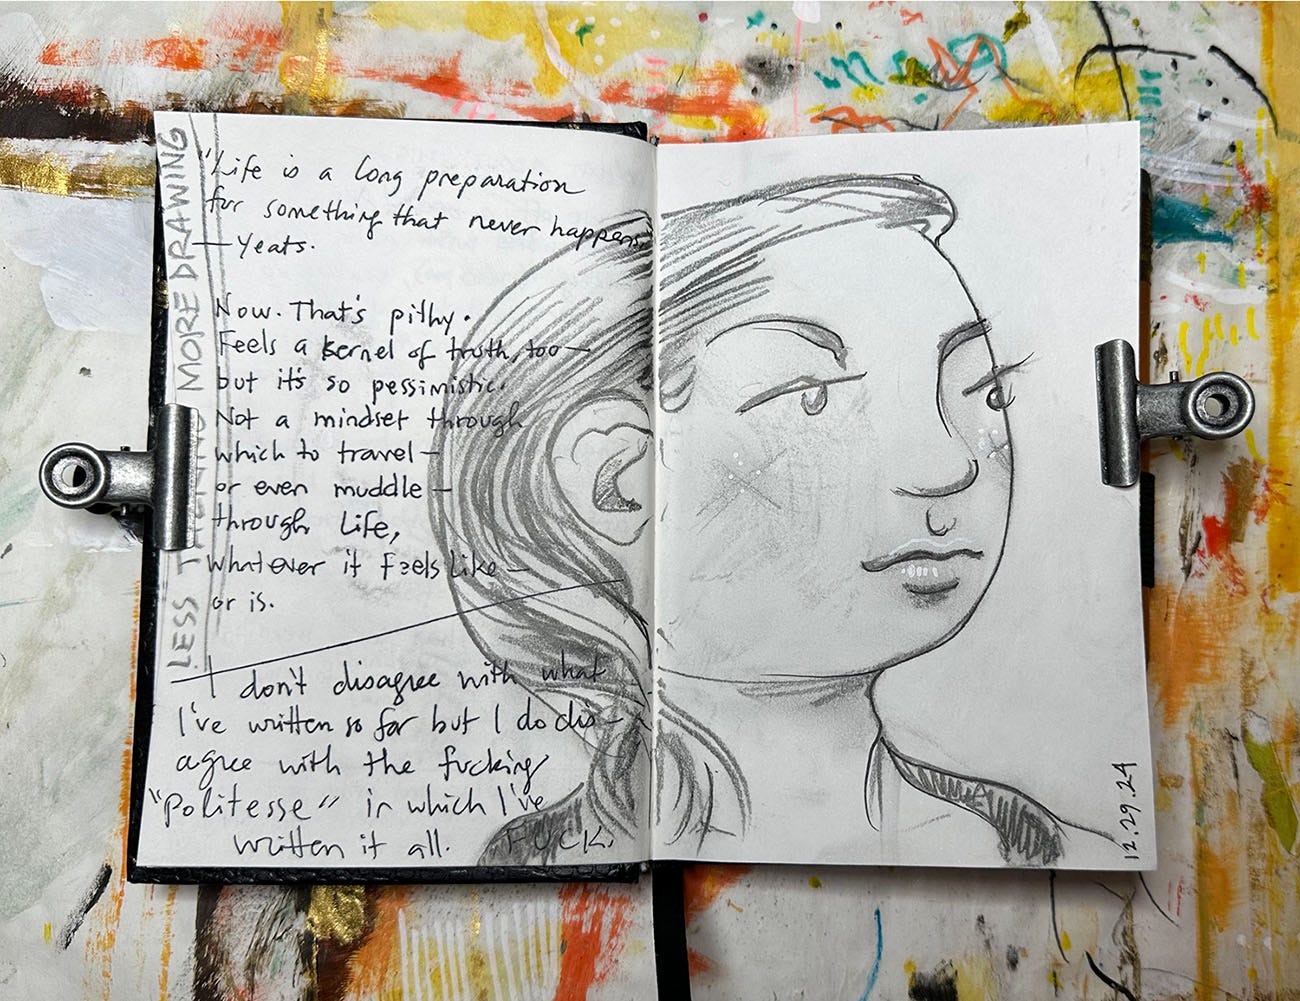 "Life is a long preparation
for something that never happens.
— Yeats.
Now. That's pithy.
Feels a kernel of truth, too —
but it's so pessimistic.
Not a mindset through
which to travel —
or even muddle —
through life,
whatever it feels like —
or is.
I don't disagree with what
I've written so far but I do dis-
agree with the fucking
"politesse" in which I've
written it all. FUCK.
LESS MORE DRAWING
12.29.24